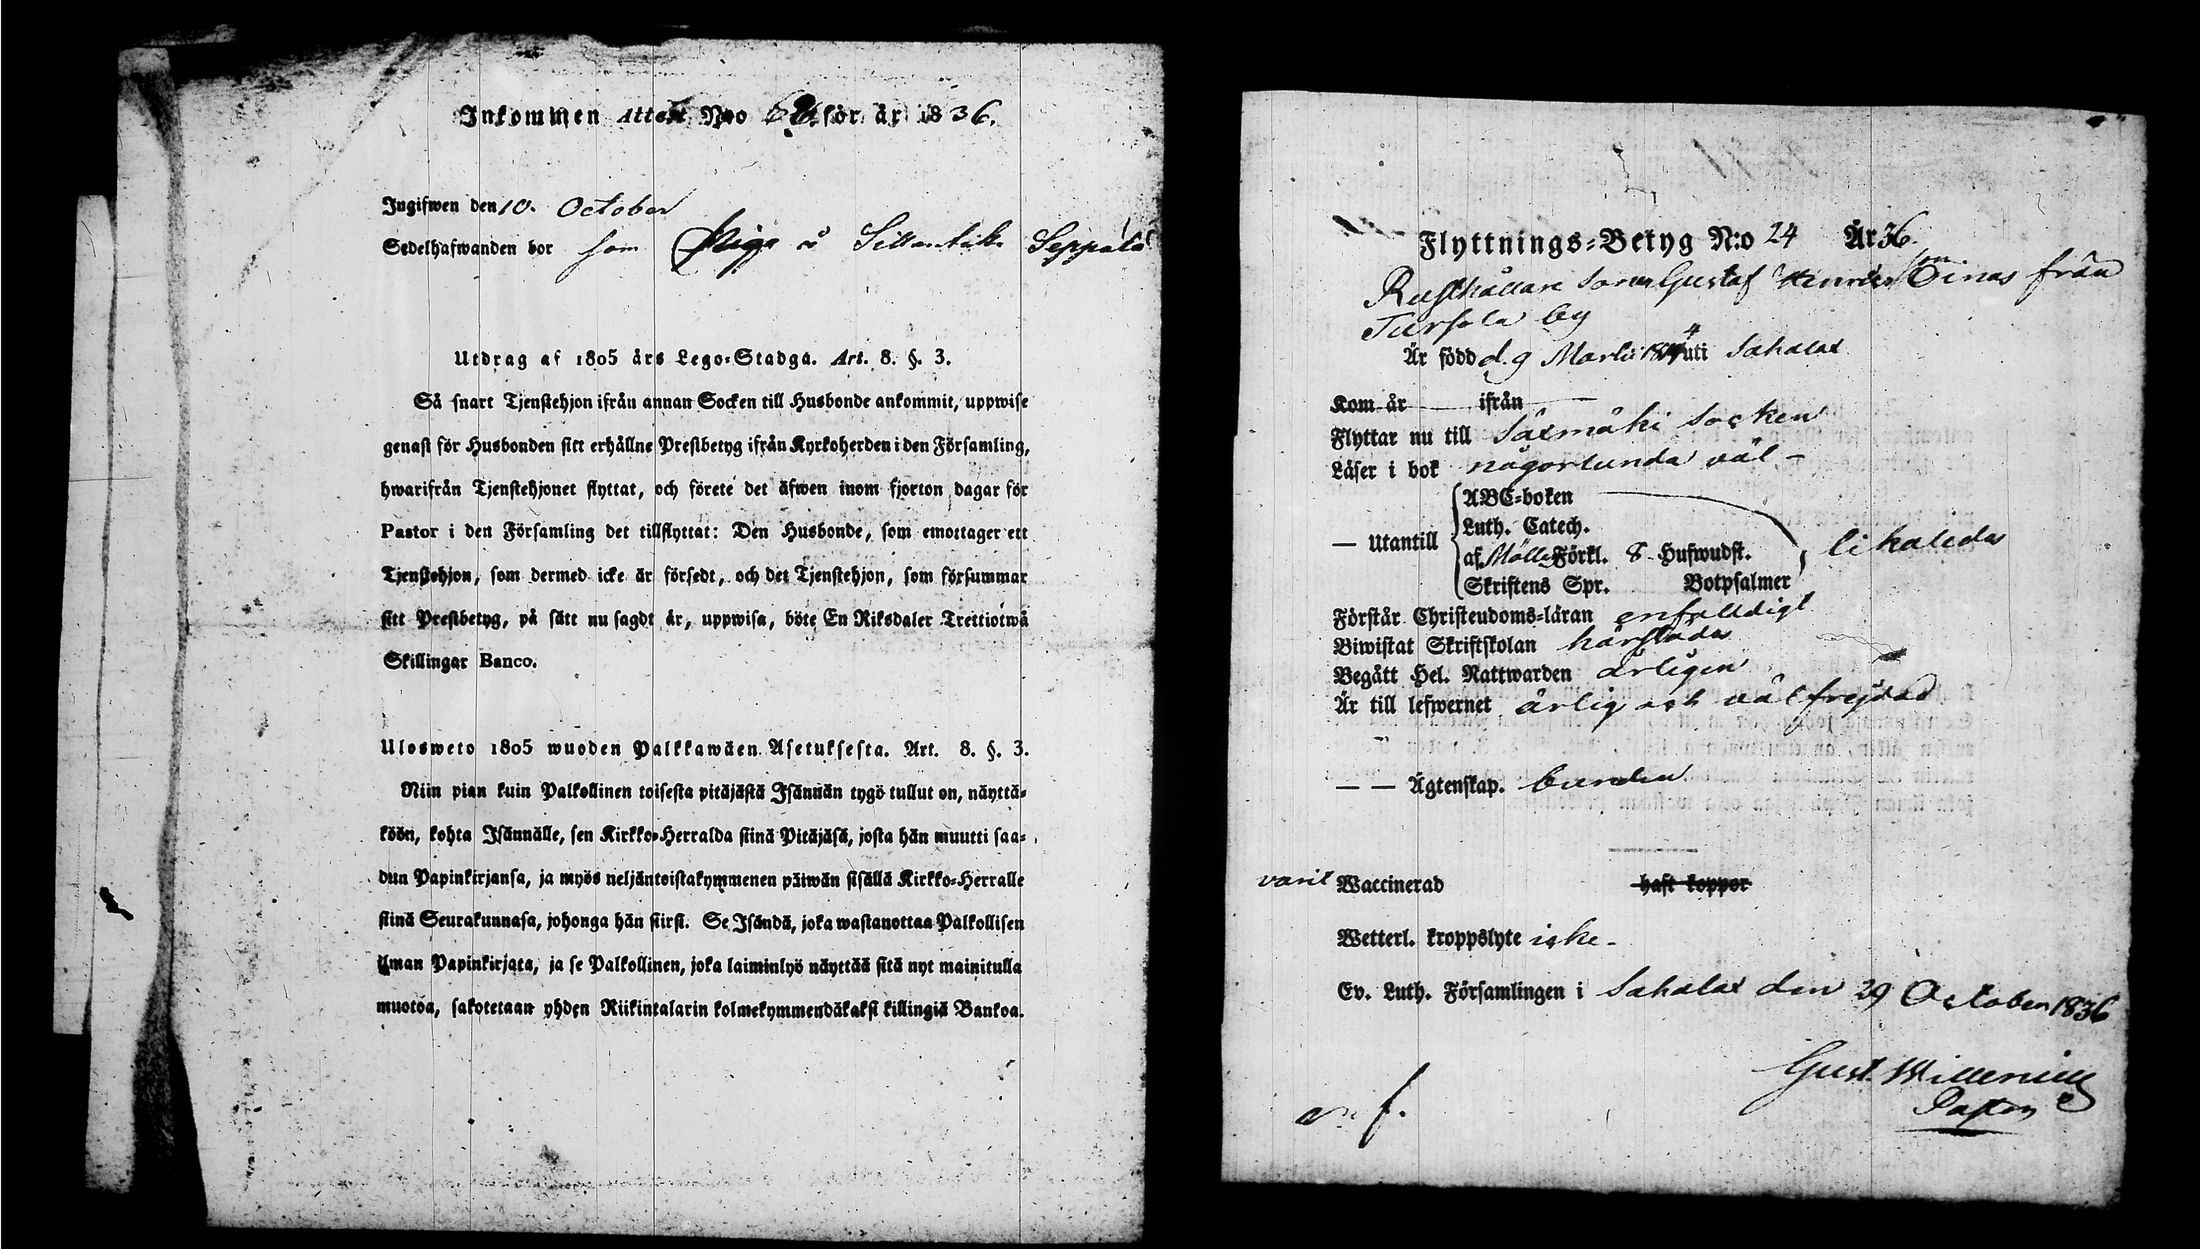 Inkommen Attest N:o för år 1836.
Ingifwen den 10. October
Sedelhafwanden bor som Piga å Seppälä
Utdrag af 1805 års Lego-Stadga. Art. 8. §. 3.
Så snart Tjenstehjon ifrån annan Socken till Husbonde ankommit, uppwise
genast för Husbonden sitt erhållne Prestbetyg ifrån Kyrkoherden i den Församling,
hwarifrån Tjenstehjonet flyttat, och förete det äfwen inom fjorton dagar för
Pastor i den Församling det tillflyttat: Den Husbonde, som emottager ett
Tjenstehjon, som dermed icke är försedt, och det Tjenstehjon, som försummar
sitt Prestbetyg, på sätt nu sagdt är, uppwisa, böte En Riksdaler Trettiotwå
Skillingar Banco.
Ulosweto 1805 wuoden Palkkawäen Asetuksesta. Art. 8. §. 3.
Niin pian kuin Palkollinen toisesta pitäjästä Isännän tygö tullut on, näyttä-
köön, kohta Isännälle, sen Kirkko-Herralda siinä Pitäjäsä, josta hän muutti saa-
dun Papinkirjansa, ja myös neljäntoistakymmenen päiwän sisällä Kirkko-Herralle
siinä Seurakunnasa, johonga hän siirsi. Se Isändä, joka wastanottaa Palkollisen
ilman Papinkirjata, ja se Palkollinen, joka laiminlyö näyttää sitä nyt mainitulla
muotoa, sakotetaan yhden Riikintalarin kolmekymmendäkaksi killingiä Bankoa.
Flyttnings-Betyg N:o 24 År 36.
Rusthållare Sonen Gustaf från
Tursola by
Är född d. 9 Martii uti Sahalax
Kom år ifrån
Flyttar nu till Säxmäki Socken
Läser i bok någorlunda väl -
— Utantill
ABC-boken
Luth. Catech.
af Möll. Förkl. 8 Hufwudst.
Skriftens Spr. Botpsalmer
likaledes
Förstår Christendoms-läran enfaldigt
Biwistat Skriftskolan härstädes
Begått Hel. Nattwarden årligen
Är till lefwernet ärlig och välfrejdad
— — Ägtenskap. bunden
varit Waccinerad haft koppor
Wetterl. kroppslyte icke -
Ev. Luth. Församlingen i Sahalax den 29 October 1836
Gust. Willenius
Pastor